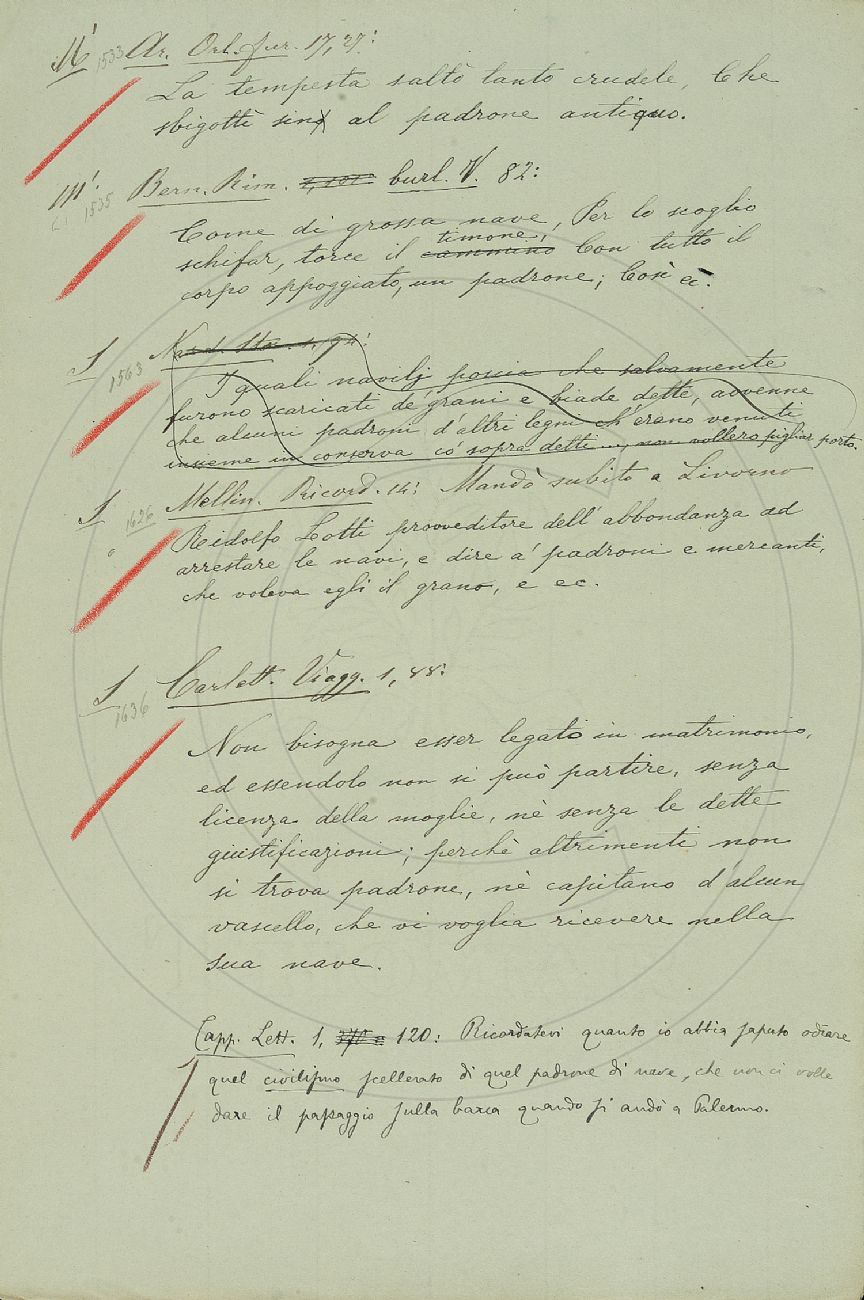 M' 1533 Ar. Orl. fur. 17, 27:
La tempesta saltò tanto crudele, Che
sbigottì sino al padrone antiquo.
M' 1535 Bern. Rim. burl. V. 82:
Come di grossa nave, Per lo scoglio
schifar, torce il cammino timone, Con tutto il
corpo appoggiato, un padrone; Così ec.
S 1563 Nard. Stor. 1, 94:
I quali navilj poscia che salvamente
furono scaricati de' grani e biade dette, avvenne
che alcuni padroni d'altri legni ch'erano venuti
insieme in conserva co' sopra detti ..., non vollero pigliar porto.
S 1626 Mellin. Ricord. 14: Mandò subito a Livorno
Ridolfo Lotti provveditore dell'abbondanza ad
arrestare le navi, e dire a' padroni e mercanti,
che voleva egli il grano, e ec.
S 1636 Carlett. Viagg. 1, 88:
Non bisogna esser legato in matrimonio,
ed essendolo non si può partire, senza
licenza della moglie, nè senza le dette
giustificazioni; perchè altrimenti non
si trova padrone, nè capitano d'alcun
vascello, che vi voglia ricevere nella
sua nave.
Capp. Lett. 1, 120: Ricordatevi quanto io abbia saputo odiare
quel civilissimo scellerato di quel padrone di nave, che non ci volle
dare il passaggio sulla barca quando si andò a Palermo.